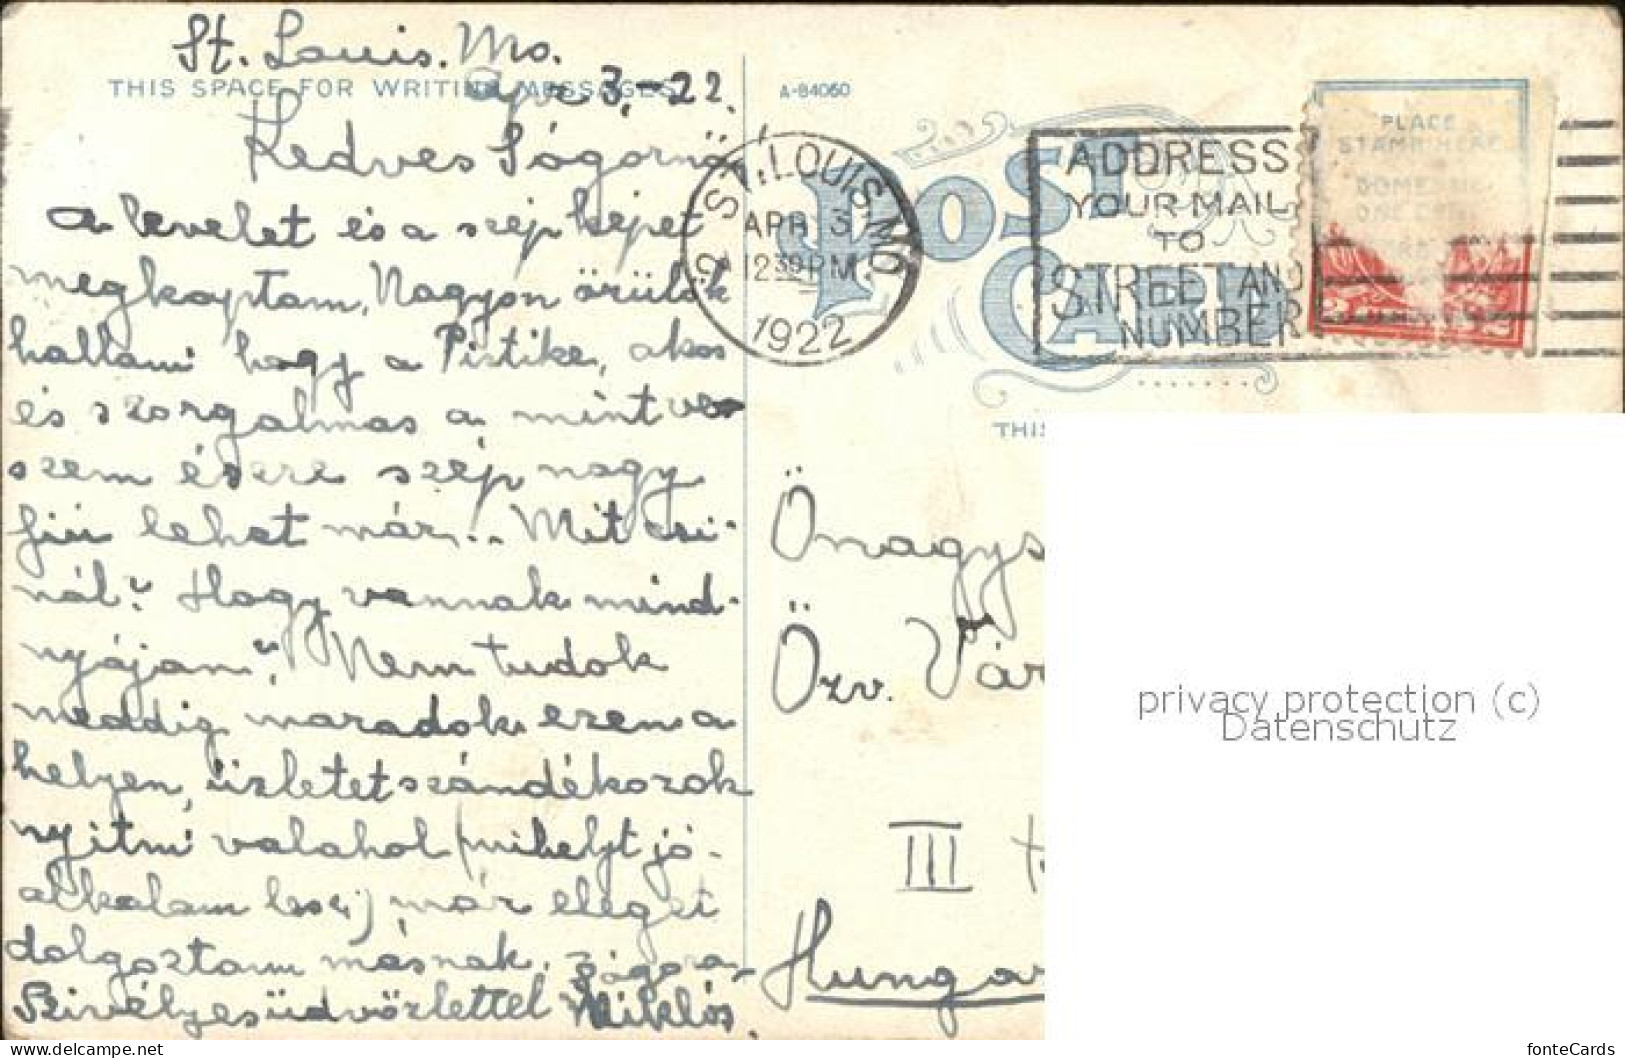 St. Louis. Mo.
THIS SPACE FOR WRITING MESSAGES
Apr 3.-22.
Kedves Sógornőm
A levelet és a szép képet
megkaptam, Nagyon örülök
hallani hogy a Pistike, okos
és szorgalmas a mint ve-
szem észre szép nagy
fiú lehet már... Mit csi-
nál? Hogy vannak mind-
nyájan? Nem tudok
meddig maradok ezen a
helyen, üzletet szándékozok
nyitni valahol (mihelyt jó
alkalam lesz) már eleget
dolgoztam másnak. Sógora
Szivélyes üdvözlettel Miklós.
A-84060
POST CARD
ST. LOUIS, MO.
APR 3
12 30 PM
1922
ADDRESS
YOUR MAIL
TO
STREET AND
NUMBER
PLACE
STAMP HERE
DOMESTIC
ONE CENT
THIS
Önagys
Özv. Vár
III
Hungar
privacy protection (c)
Datenschutz
www.delcampe.net
fonteCards